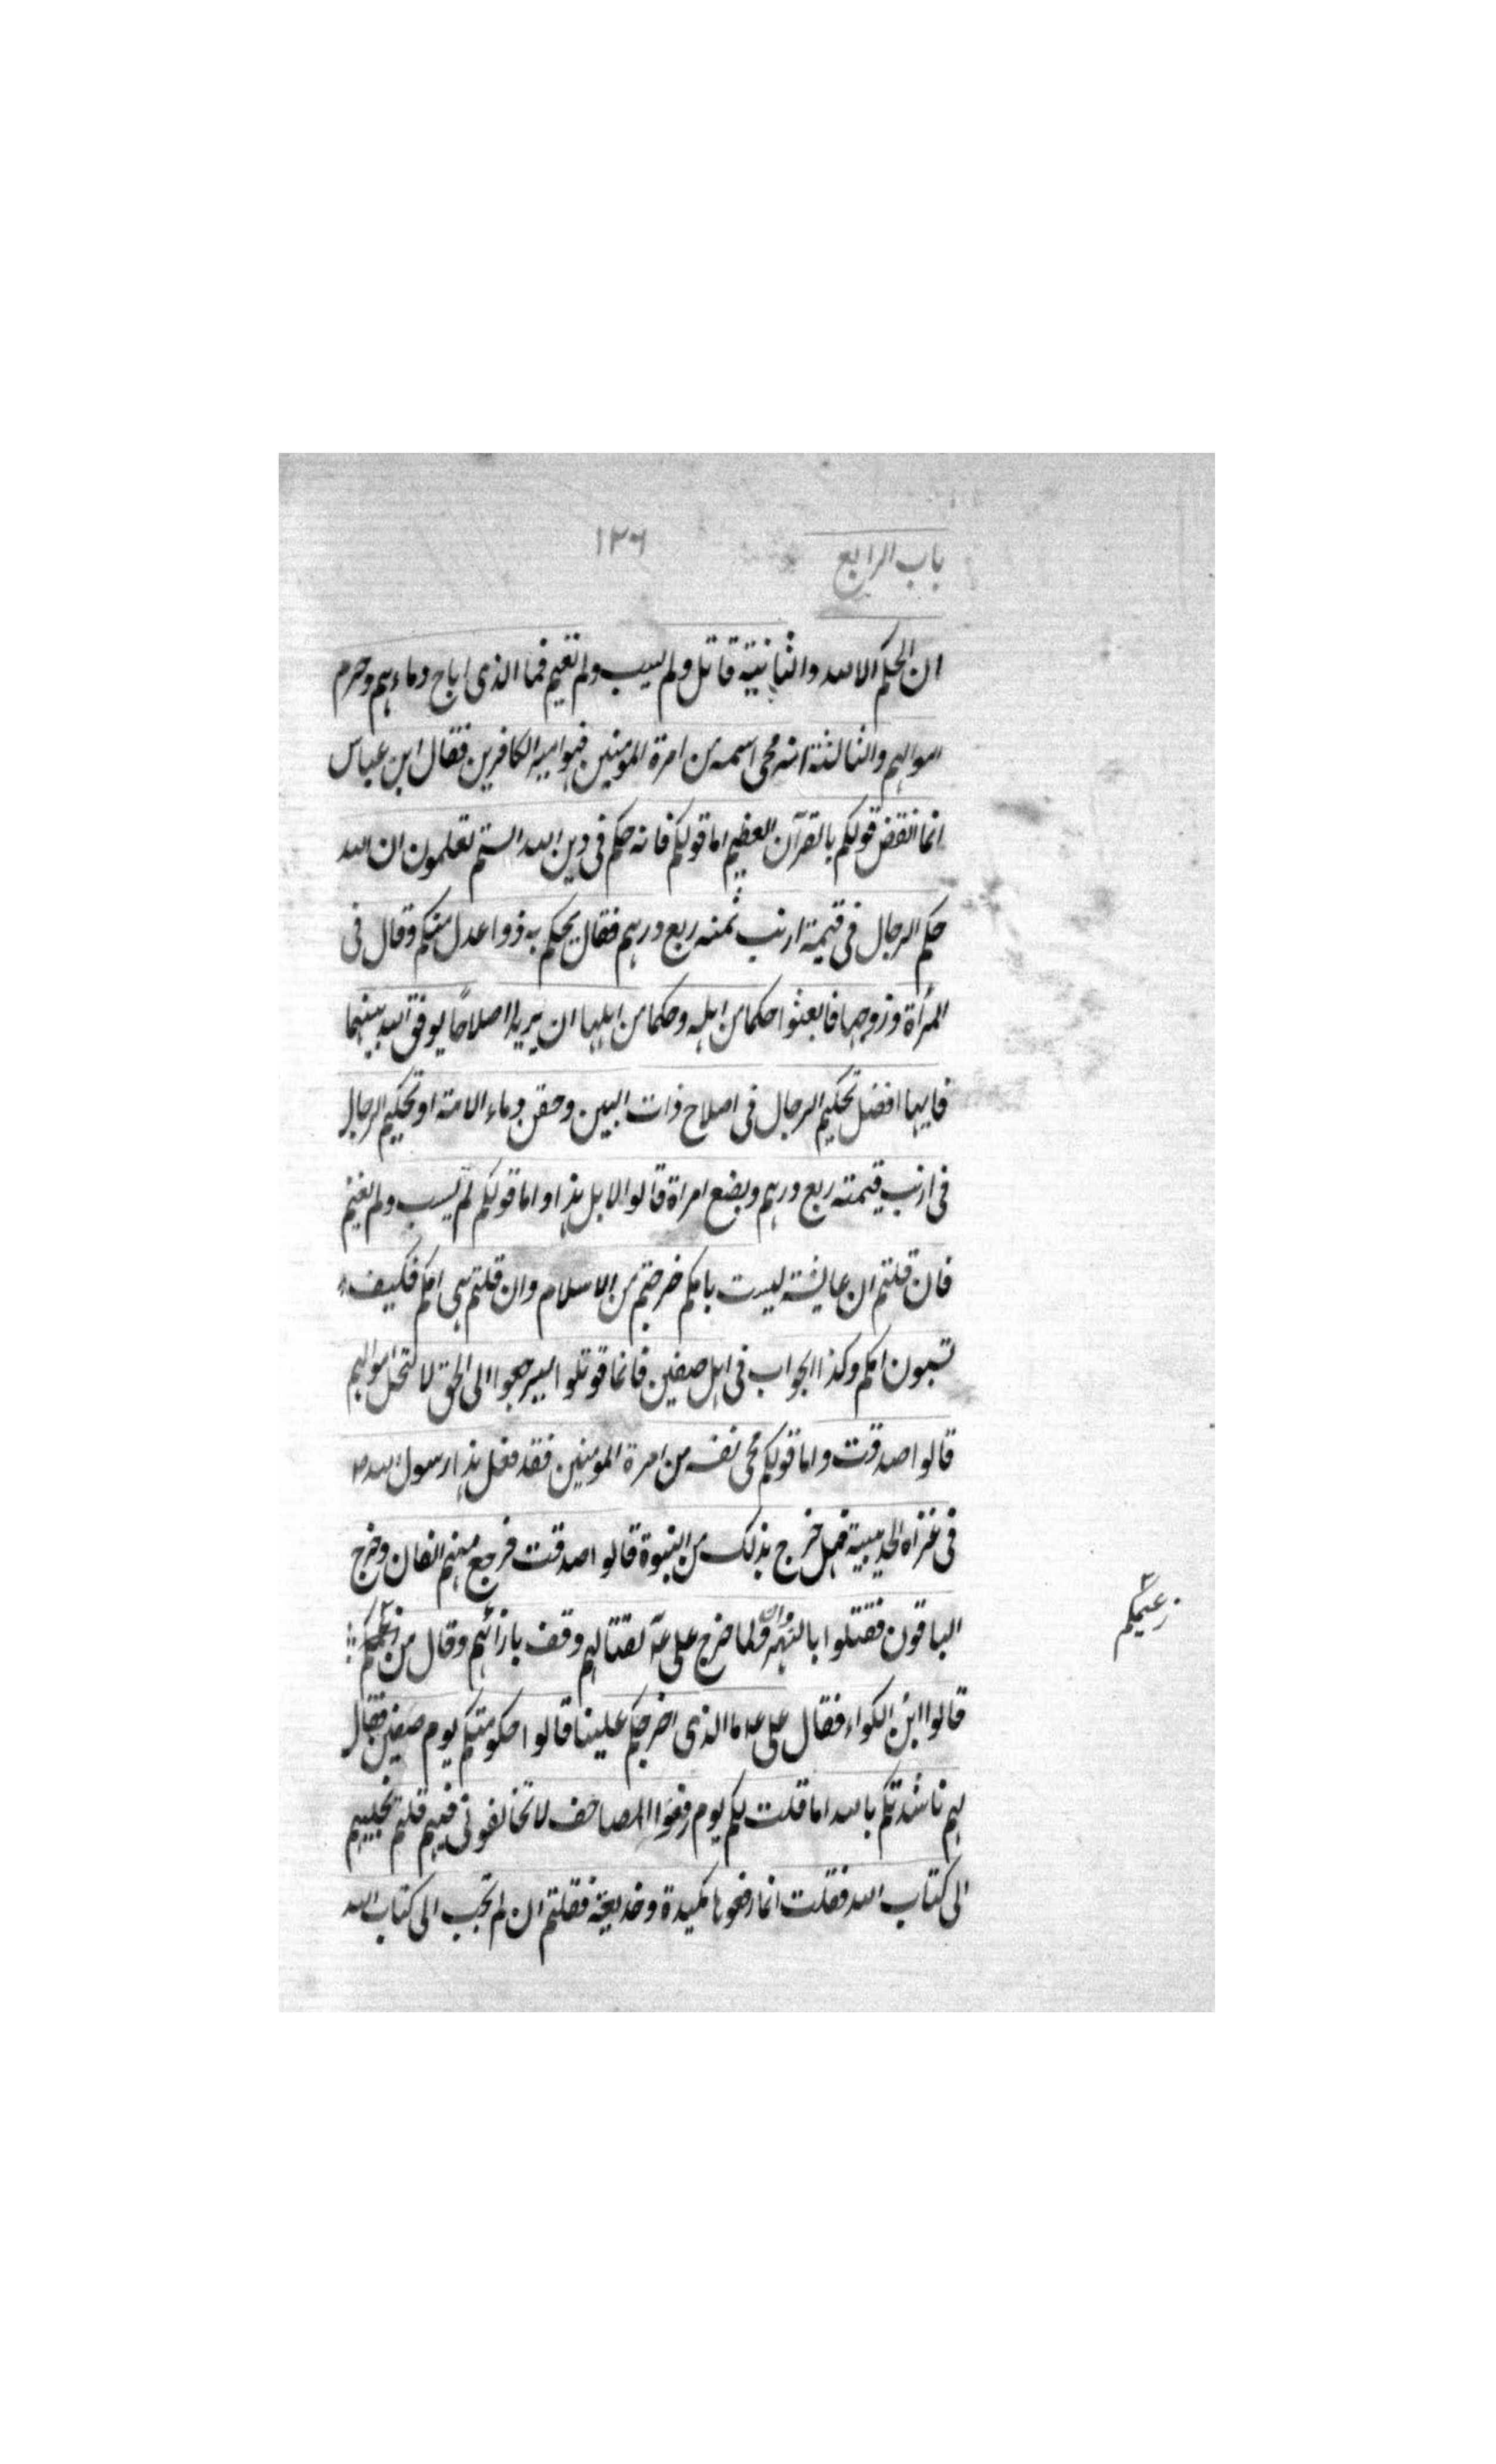 باب الرابع
١٣٦
ان الحكم الا لله والثانية قاتل ولم يسب ولم يغنم فما الذى اباح دماءهم وحرم
اموالهم والثالثة انه محى اسمه من امرة المومنين فهو امير الكافرين فقال ابن عباس
انما انقض قولكم بالقرآن العظيم اما قولكم فانه حكم فى دين الله الستم تعلمون ان الله
حكم الرجال فى قيمة ارنب ثمنه ربع درهم فقال يحكم به ذوا عدل منكم وقال فى
المرأة وزوجها فابعثوا حكما من اهله وحكما من اهلها ان يريدا اصلاحًا يوفق الله بينهما
فايهما افضل تحكيم الرجال فى اصلاح ذات البين وحقن دماء الامة او تحكيم الرجال
فى ارنب قيمته ربع درهم وبضع امراة قالوا لا بل هذا واما قولكم لم يسب ولم يغنم
فان قلتم ان عايشة ليست بامكم خرجتم من الاسلام وان قلتم هى امكم فكيف
تسبون امكم وكذا الجواب فى اهل صفين فانما قوتلوا ليرجعوا الى الحق لا لتحل اموالهم
قالوا صدقت واما قولكم محى نفسه من امرة المومنين فقد فعل هذا رسول الله ص
فى غزاه الحديبية فهل خرج بذلك من النبوة قالوا صدقت فرجع منهم الفان وخرج
الباقون فقتلوا بالنهروان ولما خرج على عم لقتالهم وقف بازائهم وقال من زعيمكم
زعيمكم
قالوا ابن الكواء فقال على عم ما الذى اخرجكم علينا قالوا حكومتكم يوم صفين فقال
لهم ناشدتكم بالله اما قلت لكم يوم رفعوا المصاحف لا تخالفونى فيهم قلتم نجيبهم
الى كتاب الله فقلت انما رفعوها مكيدة وخديعة فقلتم ان لم تجب الى كتاب الله